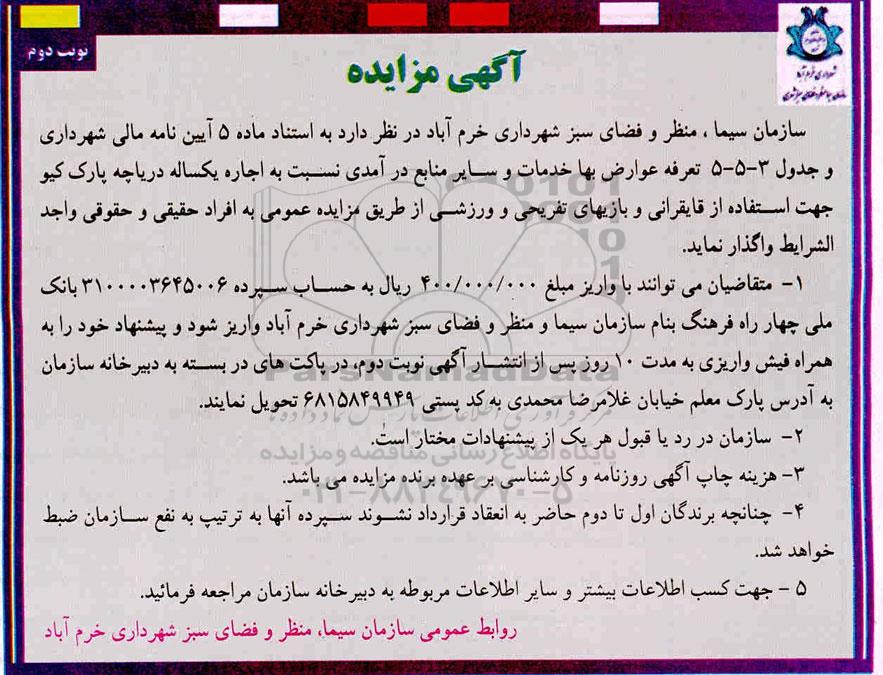 نوبت دوم
شهرداری خرم آباد
آگهی مزایده
سازمان سیما ، منظر و فضای سبز شهرداری خرم آباد در نظر دارد به استناد ماده ۵ آیین نامه مالی شهرداری
و جدول ۳-۵-۵ تعرفه عوارض بها خدمات و سایر منابع در آمدی نسبت به اجاره یکساله دریاچه پارک کیو
جهت استفاده از قایقرانی و بازیهای تفریحی و ورزشی از طریق مزایده عمومی به افراد حقیقی و حقوقی واجد
الشرایط واگذار نماید.
۱- متقاضیان می توانند با واریز مبلغ ۴۰۰/۰۰۰/۰۰۰ ریال به حساب سپرده ۳۱۰۰۰۰۳۶۴۵۰۰۶ بانک
ملی چهار راه فرهنگ بنام سازمان سیما و منظر و فضای سبز شهرداری خرم آباد واریز شود و پیشنهاد خود را به
همراه فیش واریزی به مدت ۱۰ روز پس از انتشار آگهی نوبت دوم، در پاکت های در بسته به دبیرخانه سازمان
به آدرس پارک معلم خیابان غلامرضا محمدی به کد پستی ۶۸۱۵۸۴۹۹۴۹ تحویل نمایند.
۲- سازمان در رد یا قبول هر یک از پیشنهادات مختار است.
۳- هزینه چاپ آگهی روزنامه و کارشناسی بر عهده برنده مزایده می باشد.
۴- چنانچه برندگان اول تا دوم حاضر به انعقاد قرارداد نشوند سپرده آنها به ترتیپ به نفع سازمان ضبط
خواهد شد.
۵ - جهت کسب اطلاعات بیشتر و سایر اطلاعات مربوطه به دبیرخانه سازمان مراجعه فرمائید.
روابط عمومی سازمان سیما، منظر و فضای سبز شهرداری خرم آباد
ParsNamadData
پایگاه اطلاع رسانی مناقصه و مزایده
۰۲۱-۸۸۳۴۹۶۷۰-۵